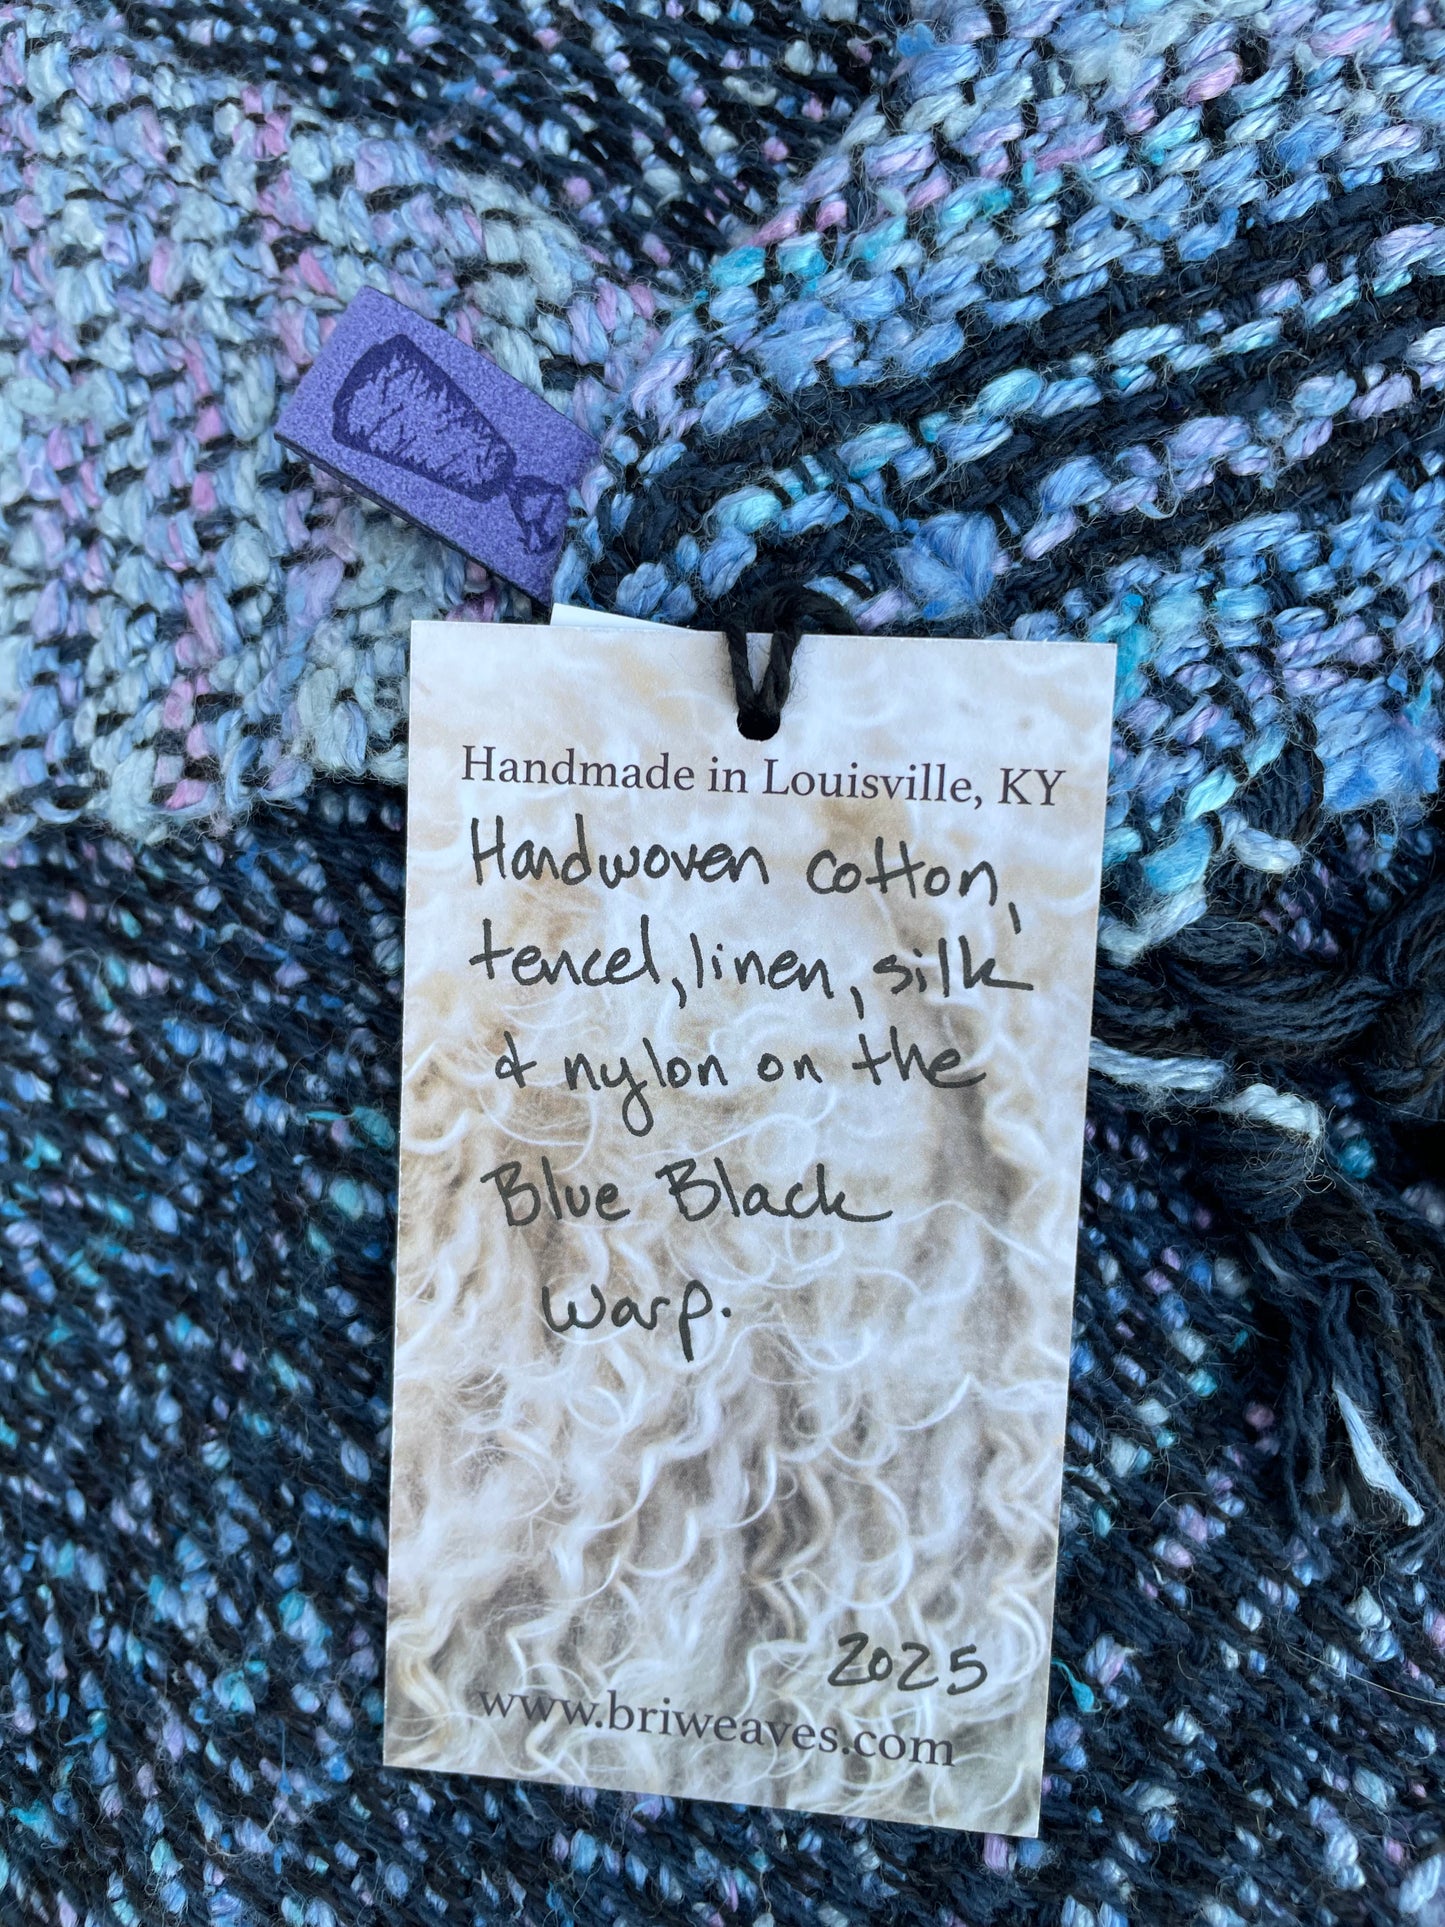 Handmade in Louisville, KY
Handwoven cotton,
tencel, linen, silk
& nylon on the
Blue Black
warp.
2025
www.briweaves.com